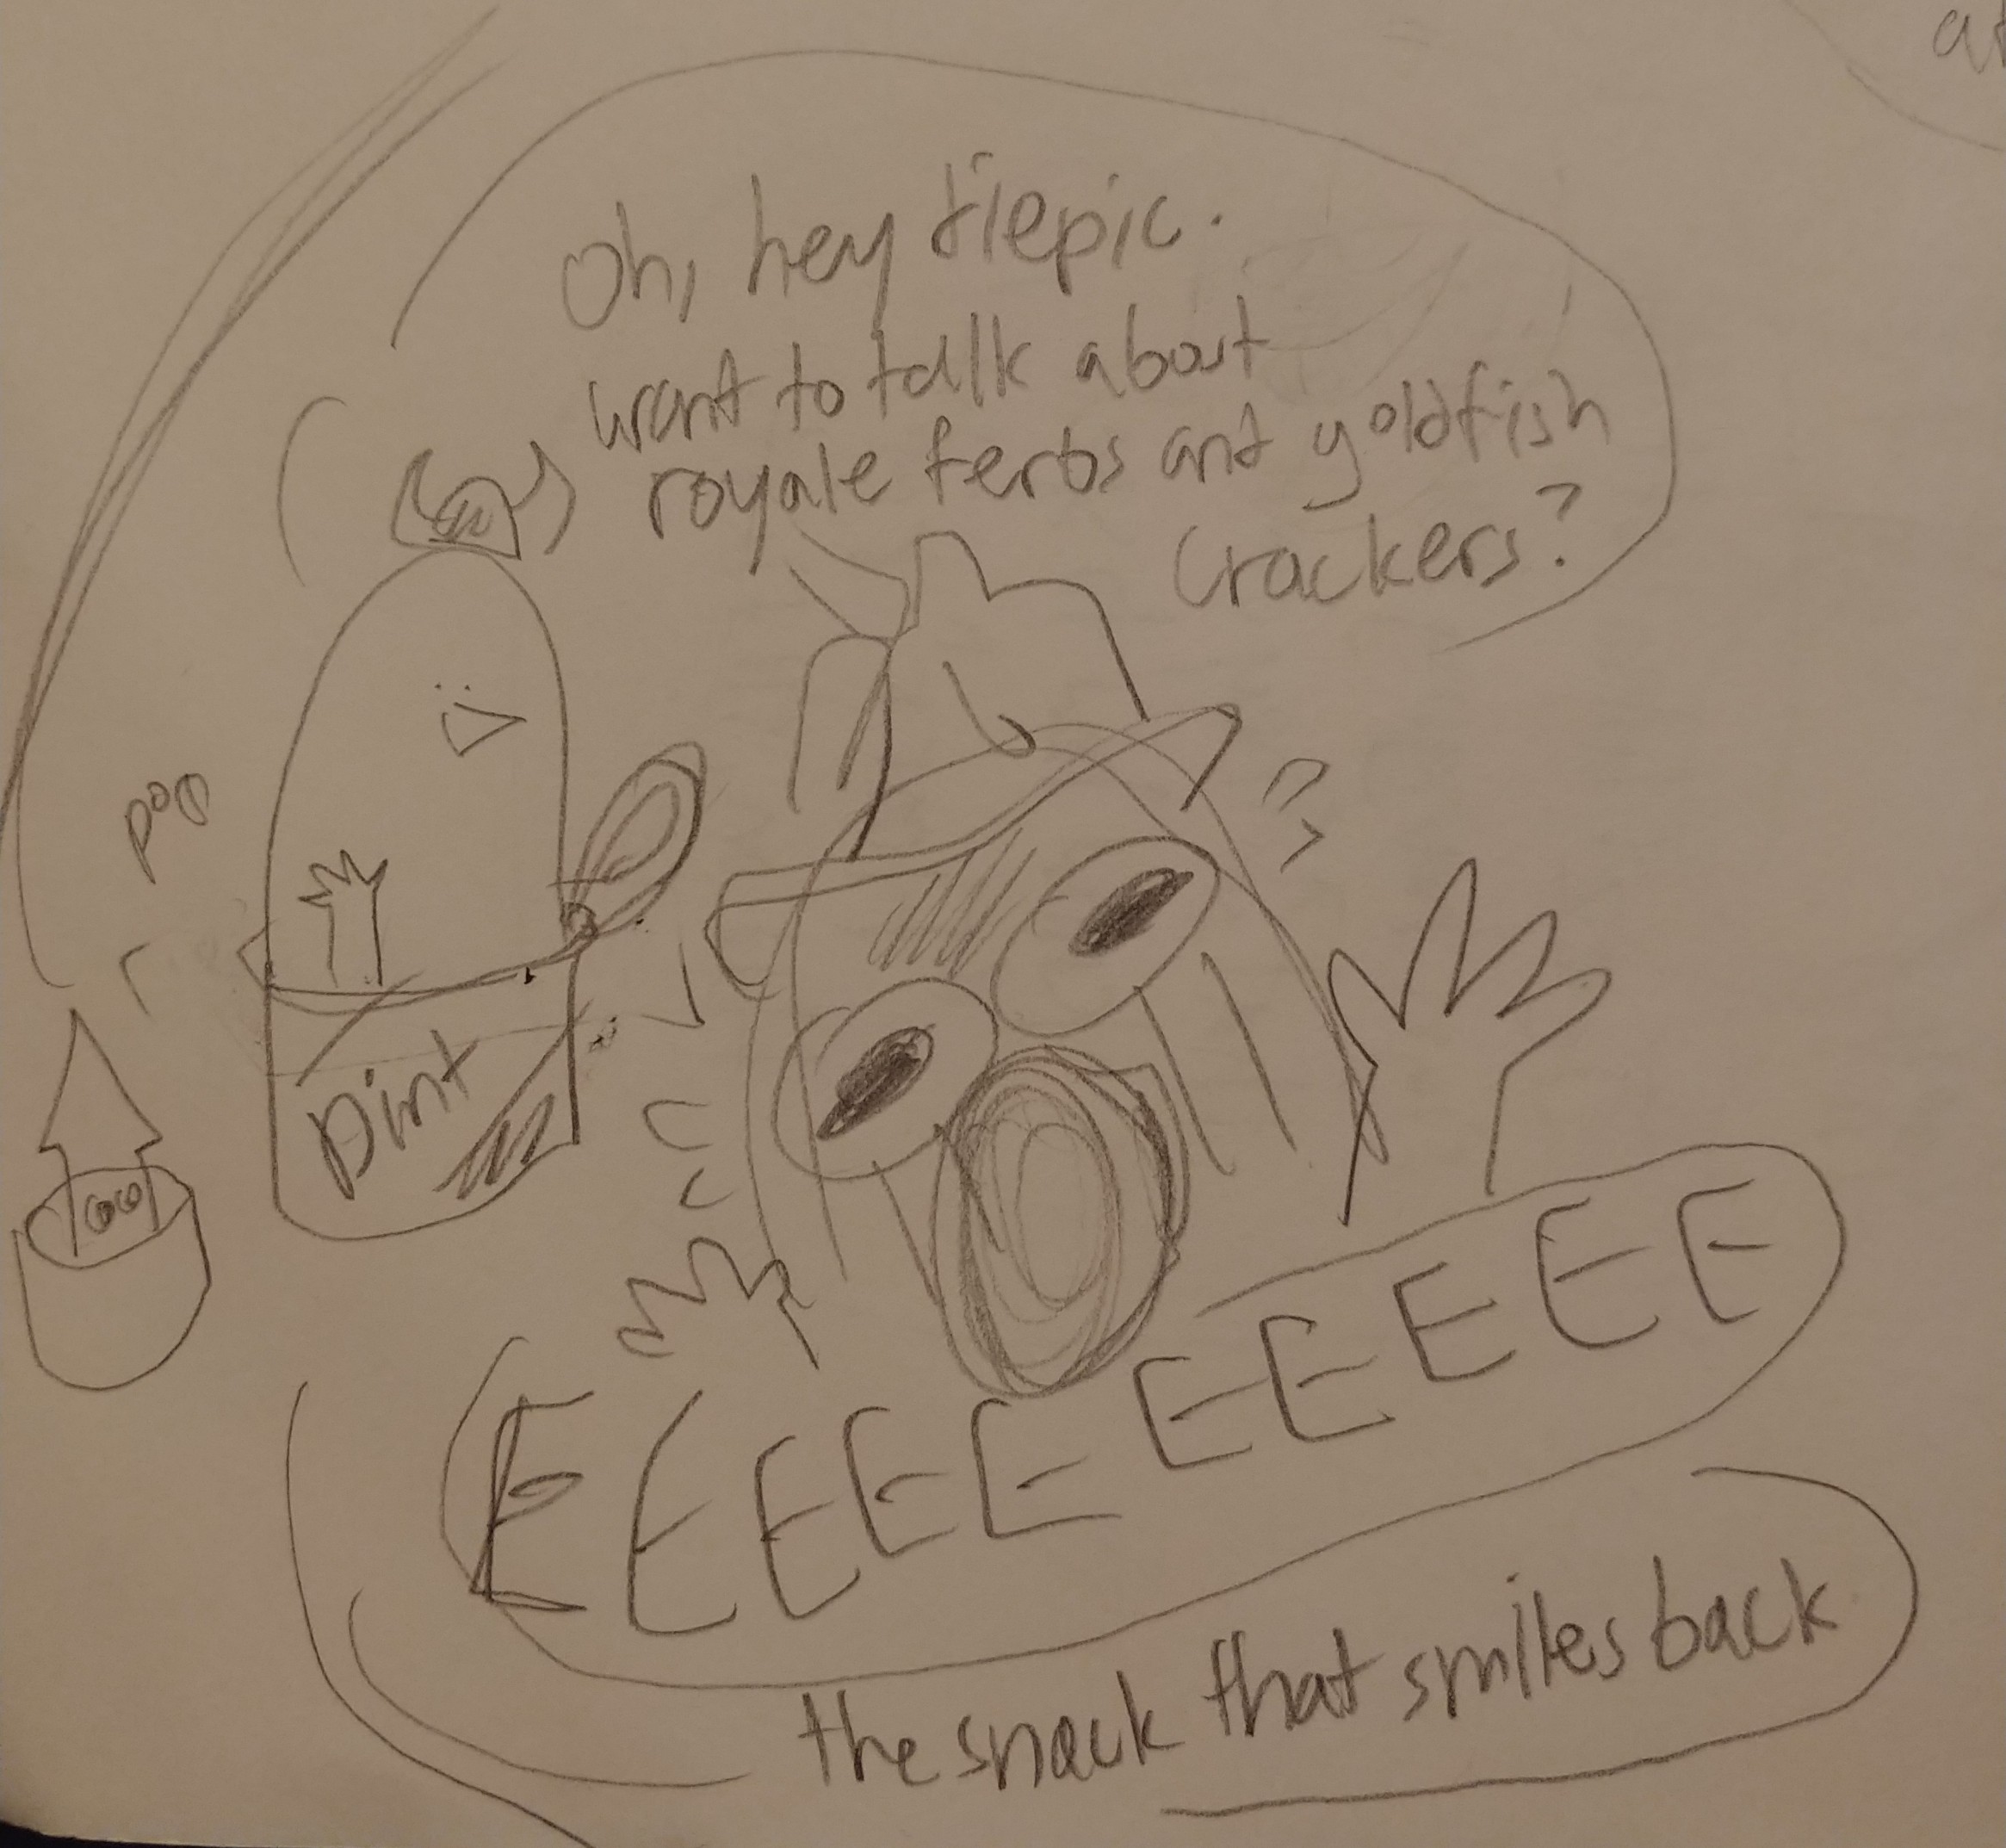 Oh, hey tiepic.
want to talk about
royale ferbs and goldfish
crackers?
poo
pint
EEEEEEEEEE
the snack that smiles back